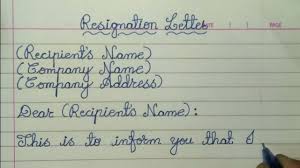 Resignation Letter
DATE PAGE
(Recipient's Name)
(Company Name)
(Company Address)
Dear (Recipient's Name):
This is to inform you that I